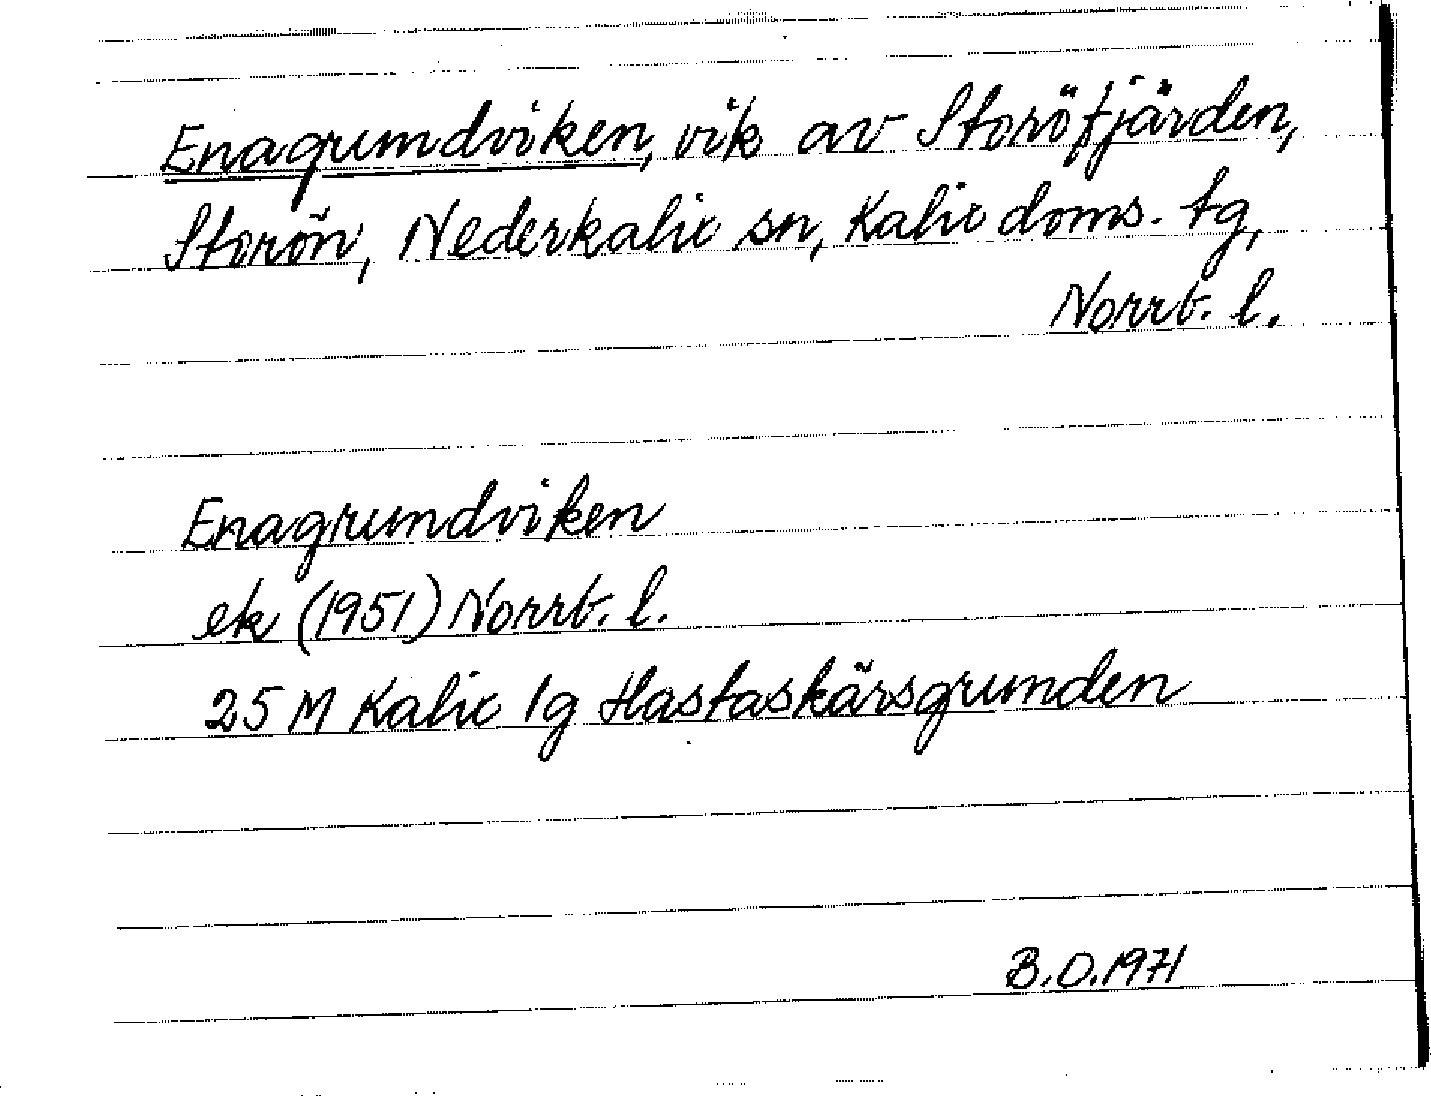 Enagrundviken, vik av Storöfjärden,
Storön, Nederkalix sn, Kalix doms. tg,
Norrb. l.
Enagrundviken
ek (1951) Norrb. l.
25 M Kalix 1g Hastaskärsgrunden
B.O.1971